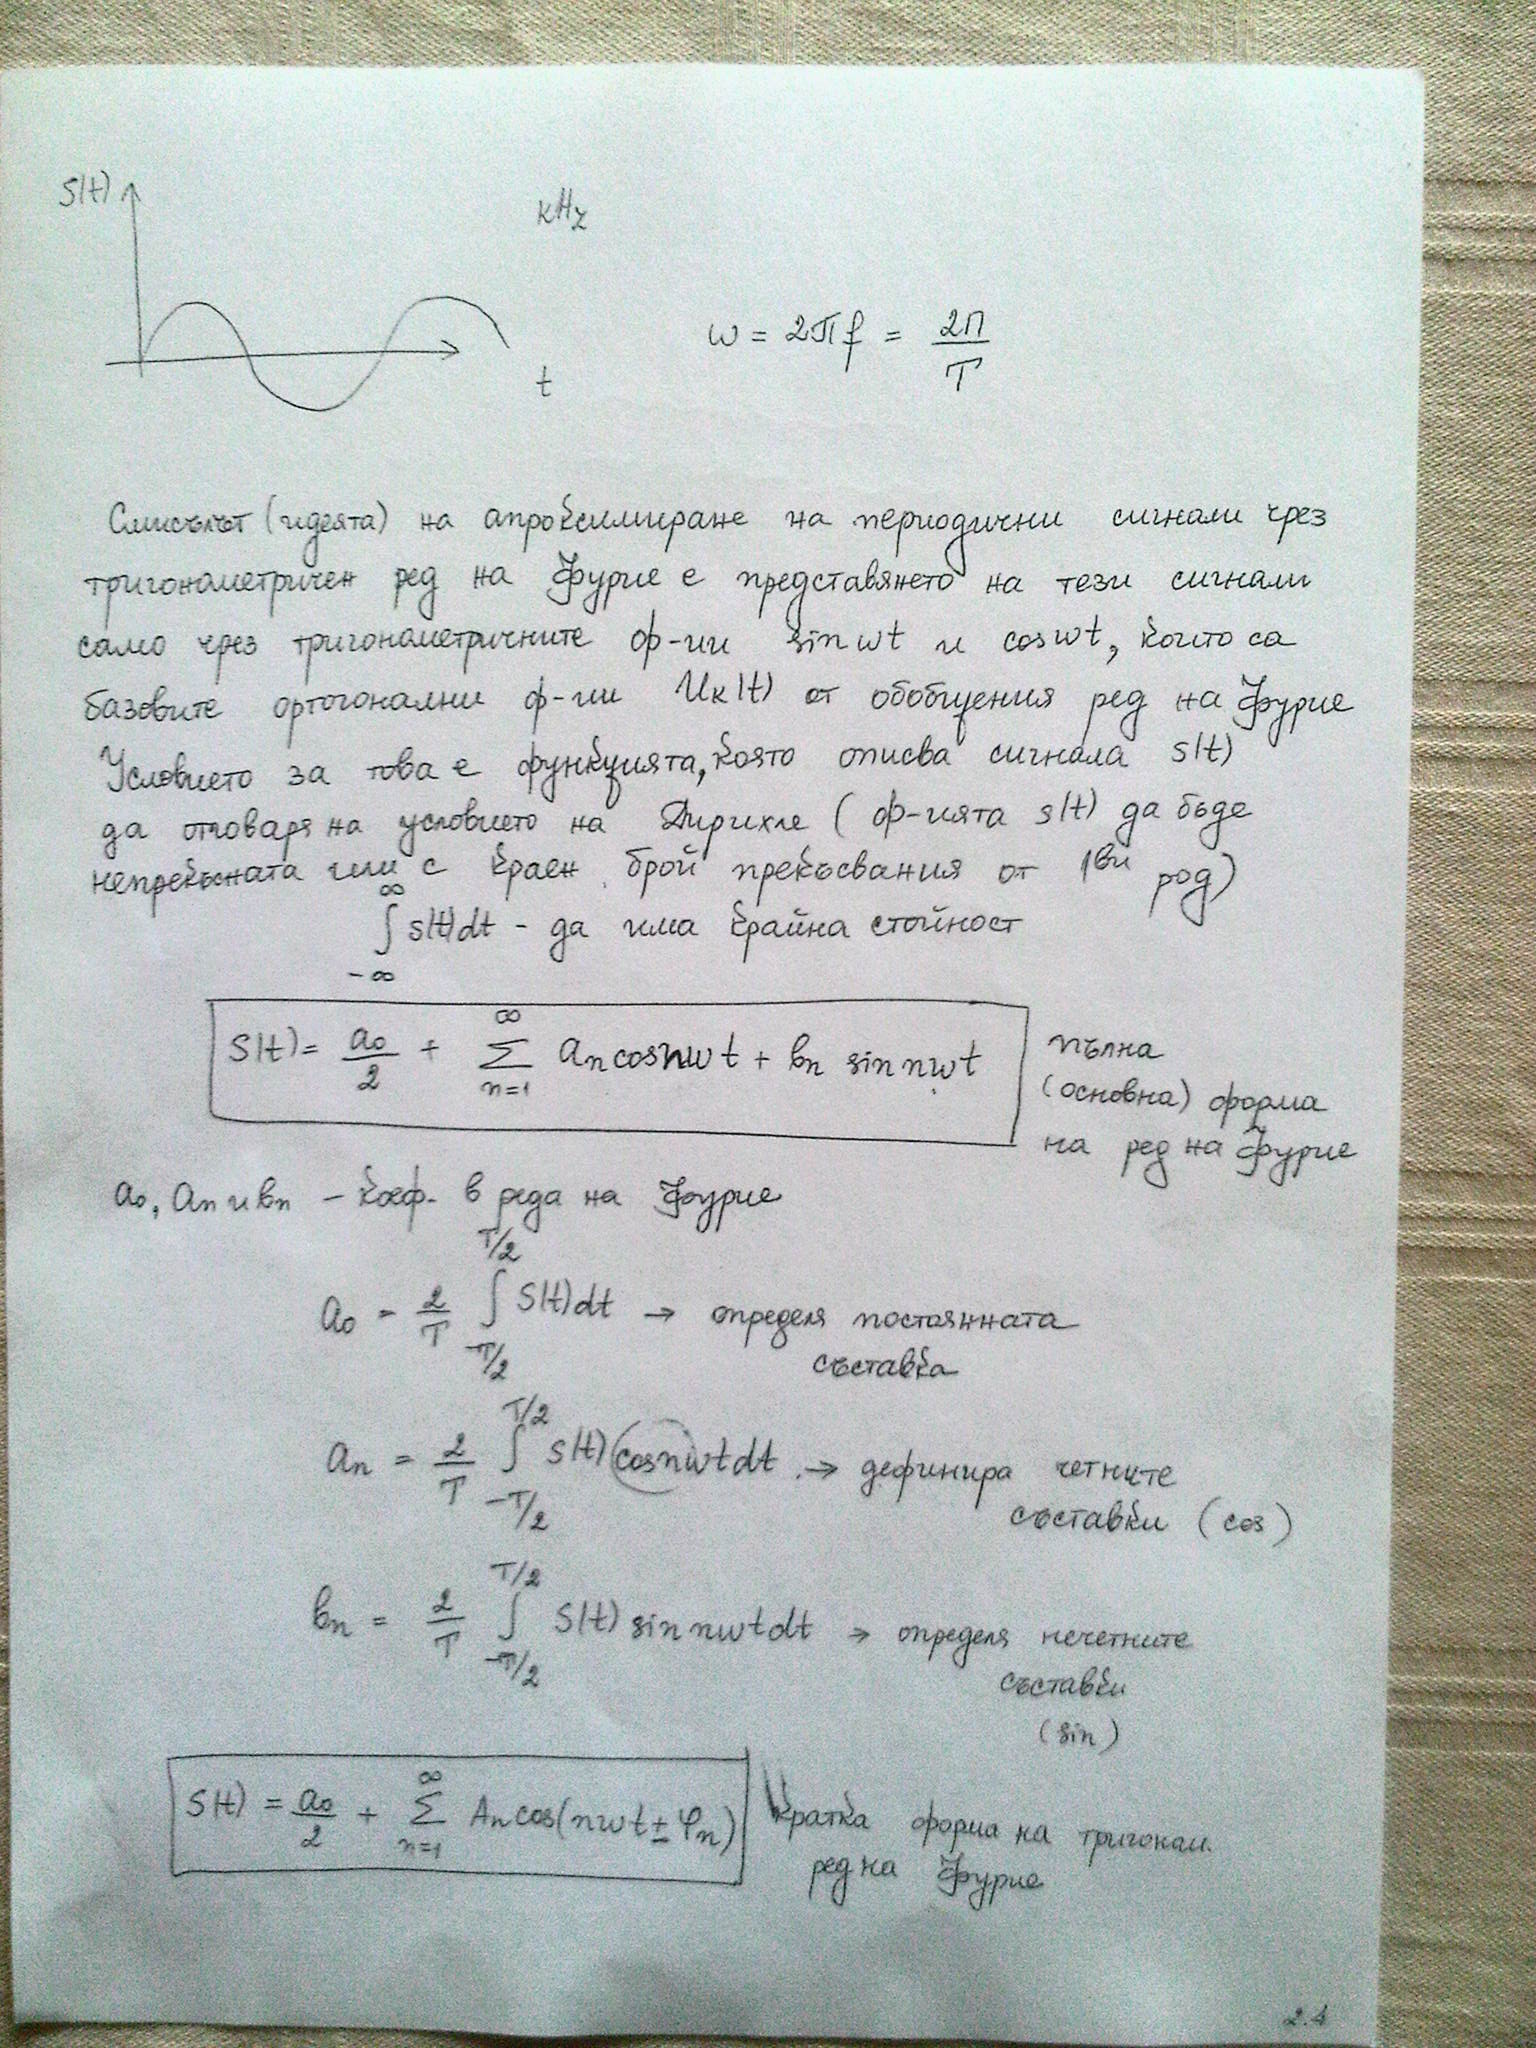 S(t)
kHz
ω = 2πf = 2π/T
t
Смисълът (идеята) на апроксимиране на периодични сигнали чрез
тригонометричен ред на Фурие е представянето на тези сигнали
само чрез тригонометричните ф-ии sin ωt и cos ωt, които са
базовите ортогонални ф-ии Uк(t) от обобщения ред на Фурие
Условието за това е функцията, която описва сигнала s(t)
да отговаря на условието на Дирихле ( ф-ията s(t) да бъде
непрекъсната или с краен брой прекъсвания от 1ви род)
∫_{-∞}^{∞} s(t)dt - да има крайна стойност
S(t) = a₀/2 + ∑_{n=1}^{∞} aₙ cos nωt + bₙ sin nωt
пълна
(основна) форма
на ред на Фурие
a₀, aₙ и bₙ - коеф. в реда на Фурие
a₀ = 2/T ∫_{-T/2}^{T/2} S(t)dt → определя постоянната
съставка
aₙ = 2/T ∫_{-T/2}^{T/2} s(t) cos nωt dt → дефинира четните
съставки (cos)
bₙ = 2/T ∫_{-T/2}^{T/2} S(t) sin nωt dt → определя нечетните
съставки
(sin)
S(t) = a₀/2 + ∑_{n=1}^{∞} Aₙ cos(nωt ± φₙ)
кратка форма на тригоном.
ред на Фурие
2.1